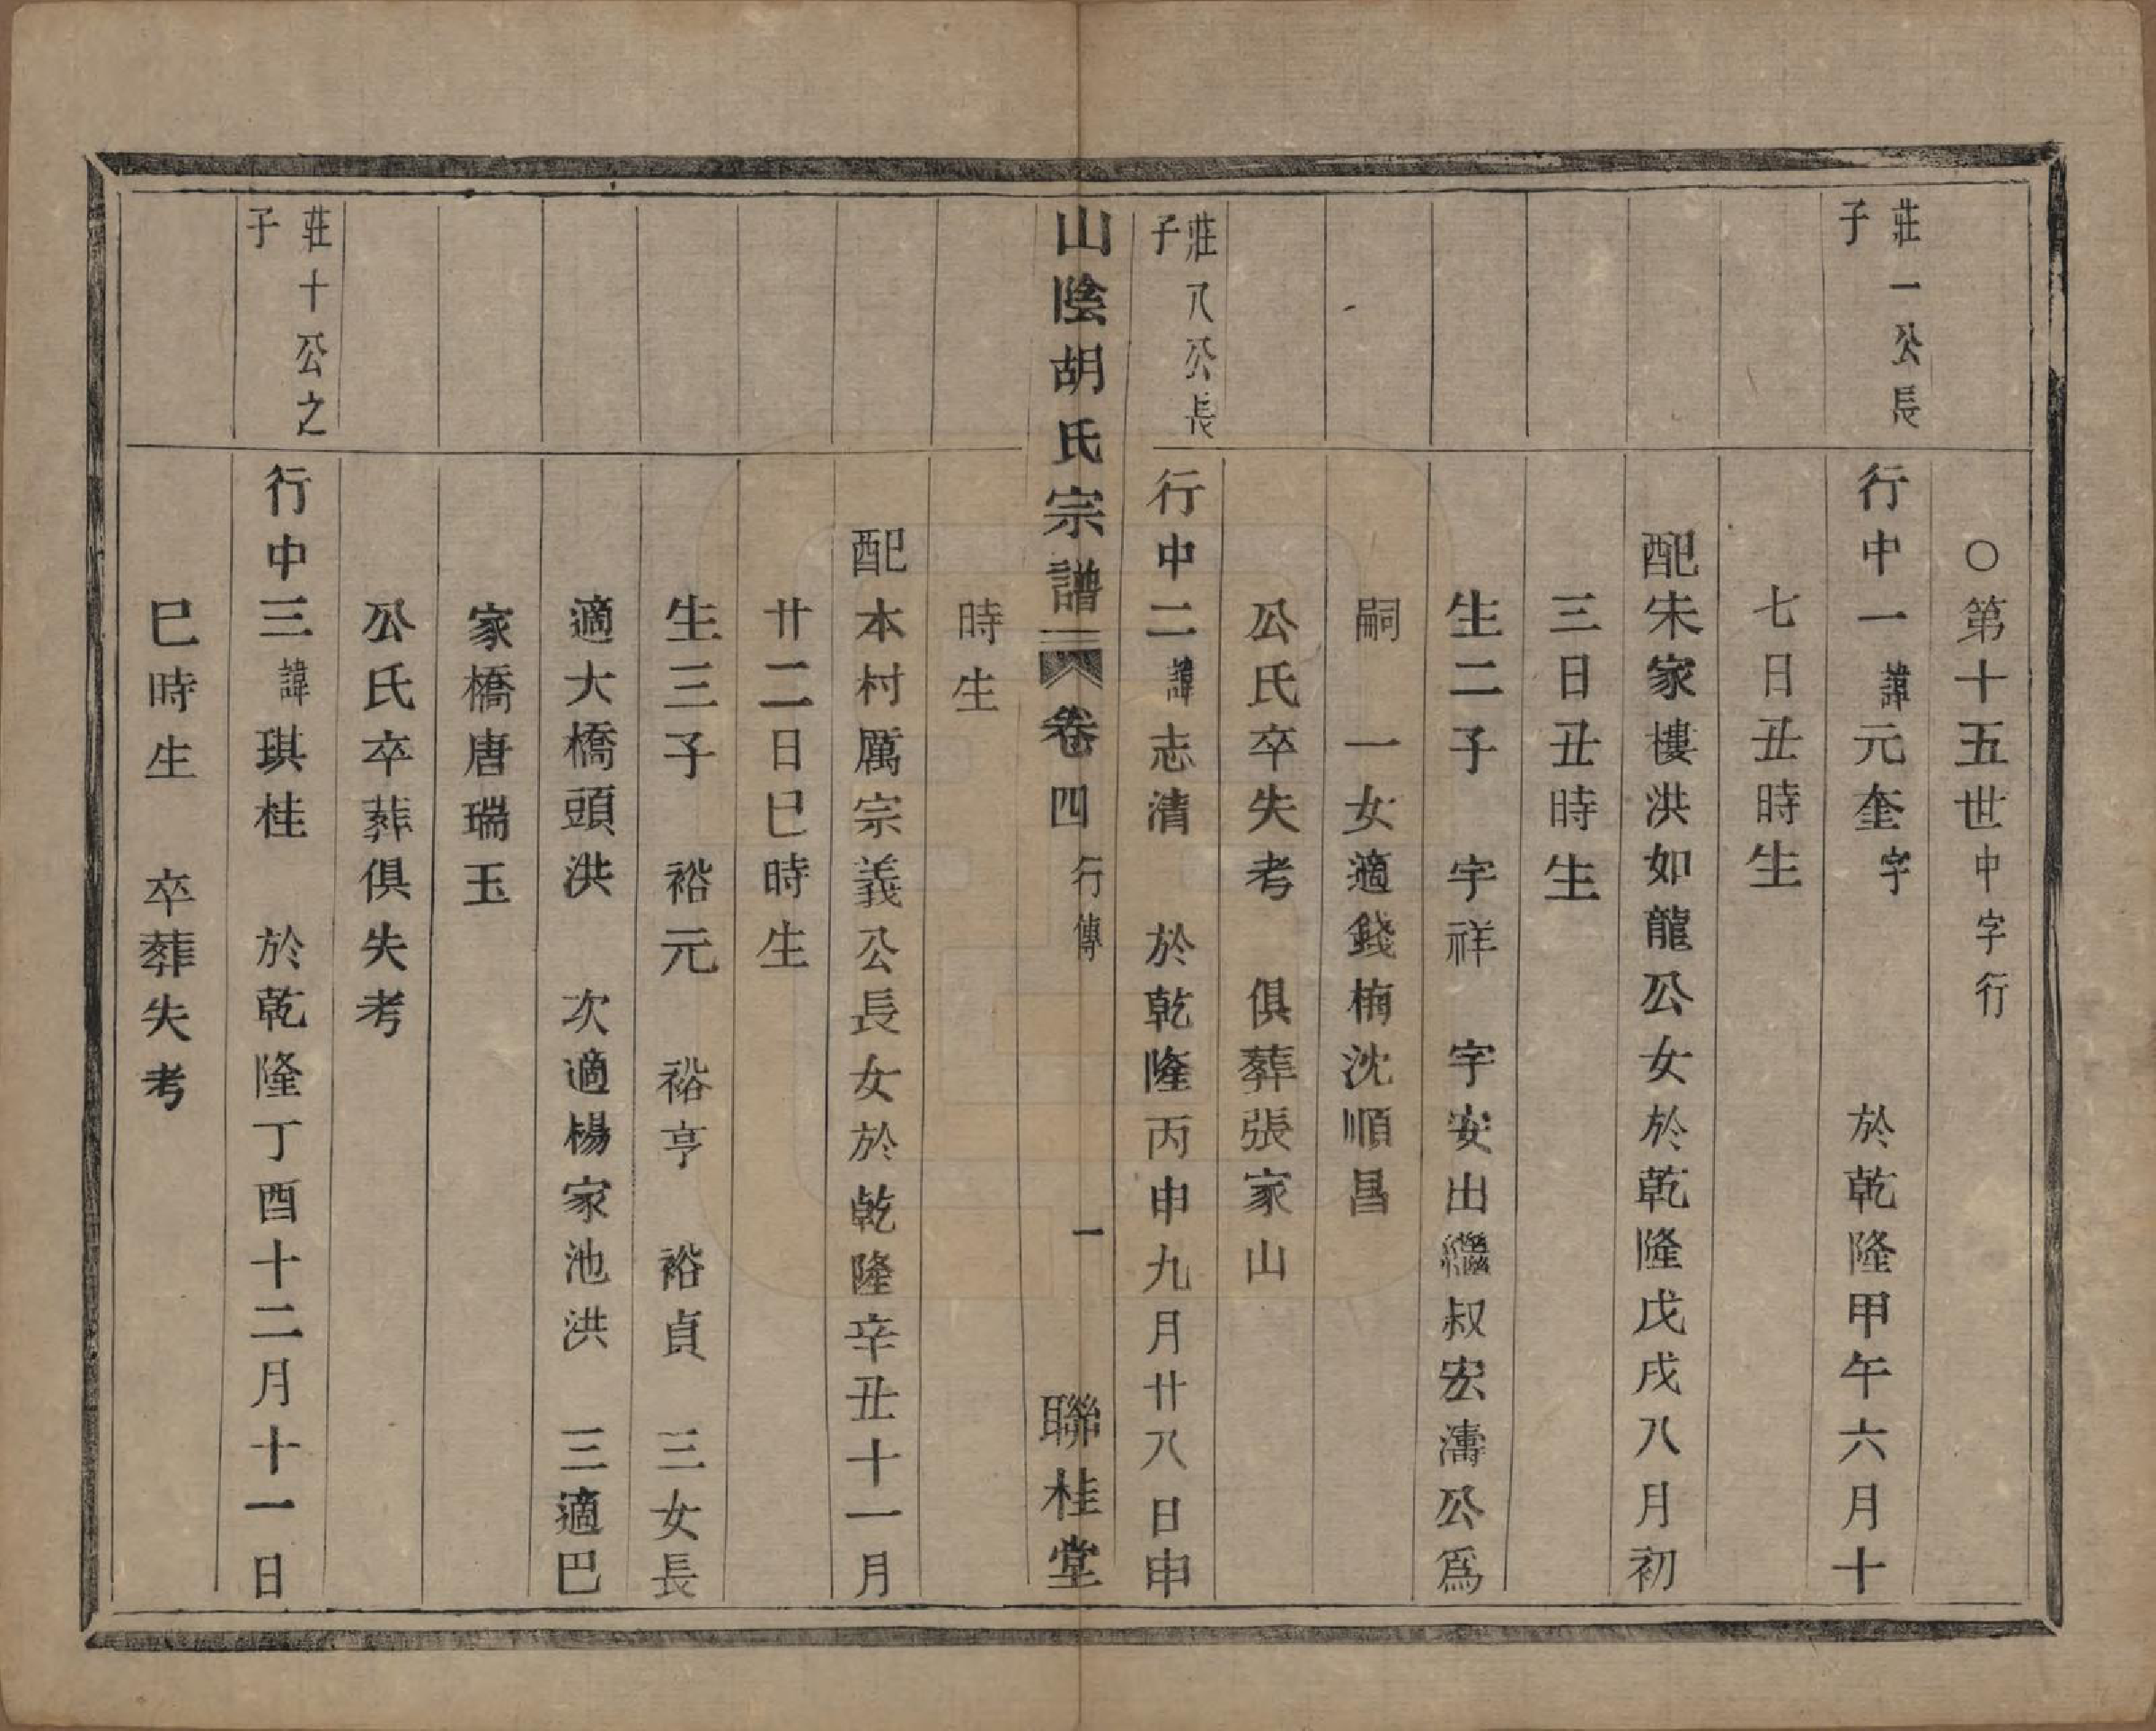 ○第十五世中字行
莊一公長子
行中一諱元奎字　於乾隆甲午六月十
七日丑時生
配朱家樓洪如龍公女於乾隆戊戌八月初
三日丑時生
生二子　字祥　字安出繼叔宏濤公爲
嗣　一女適錢梅沈順昌
公氏卒失考　俱葬張家山
莊八公長子
行中二諱志清　於乾隆丙申九月廿八日申
山陰胡氏宗譜　卷四　行傳　一　聯桂堂
時生
配本村厲宗義公長女於乾隆辛丑十一月
廿二日巳時生
生三子　裕元　裕亨　裕貞　三女長
適大橋頭洪　次適楊家池洪　三適巴
家橋唐瑞玉
公氏卒葬俱失考
莊十公之子
行中三諱琪桂　於乾隆丁酉十二月十一日
巳時生　卒葬失考